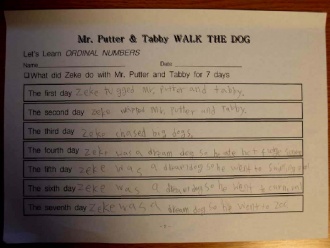 Mr. Putter & Tabby WALK THE DOG
Let's Learn ORDINAL NUMBERS
Name Date
❑What did Zeke do with Mr. Putter and Tabby for 7 days
The first day Zeke tugged Mr. Putter and tabby.
The second day zeke Mr. Putter and Tabby.
The third day Zeke chased big dogs.
The fourth day Zeke was a dream dog so he ate
The fifth day Zeke was a dream dog so he went to
The sixth day Zeke was a dream dog so he went to
The seventh day Zeke was a dream dog so he went to zoo.